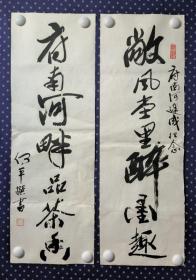 府南河建成纪念
敞风堂里醉墨趣
府南河畔品茶香
何平撰书